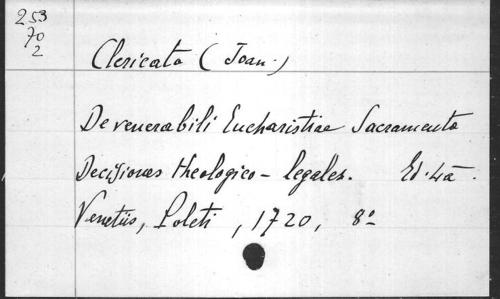 253
70
2
Clericato (Joan.)
De venerabili Eucharistiae Sacramento
Decisiones theologico - legales. Ed. 4a.
Venetiis, Poleti, 1720, 8º